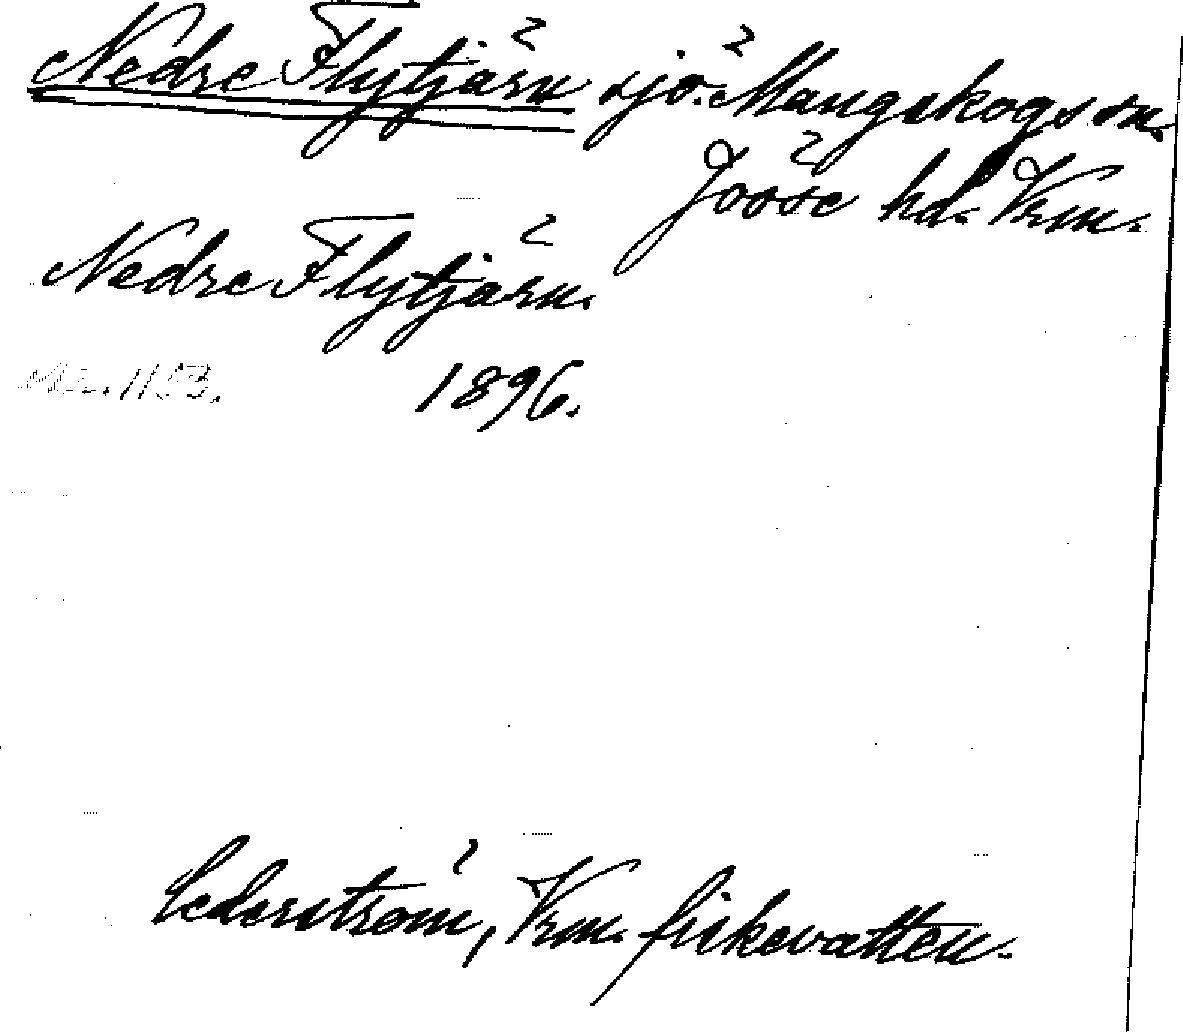 Nedre Flytjärn sjö. Mangskogs sn.
Jösse hd. Vrm.
Nedre Flytjärn.
1896.
Cederström, Vrm. fiskevatten.